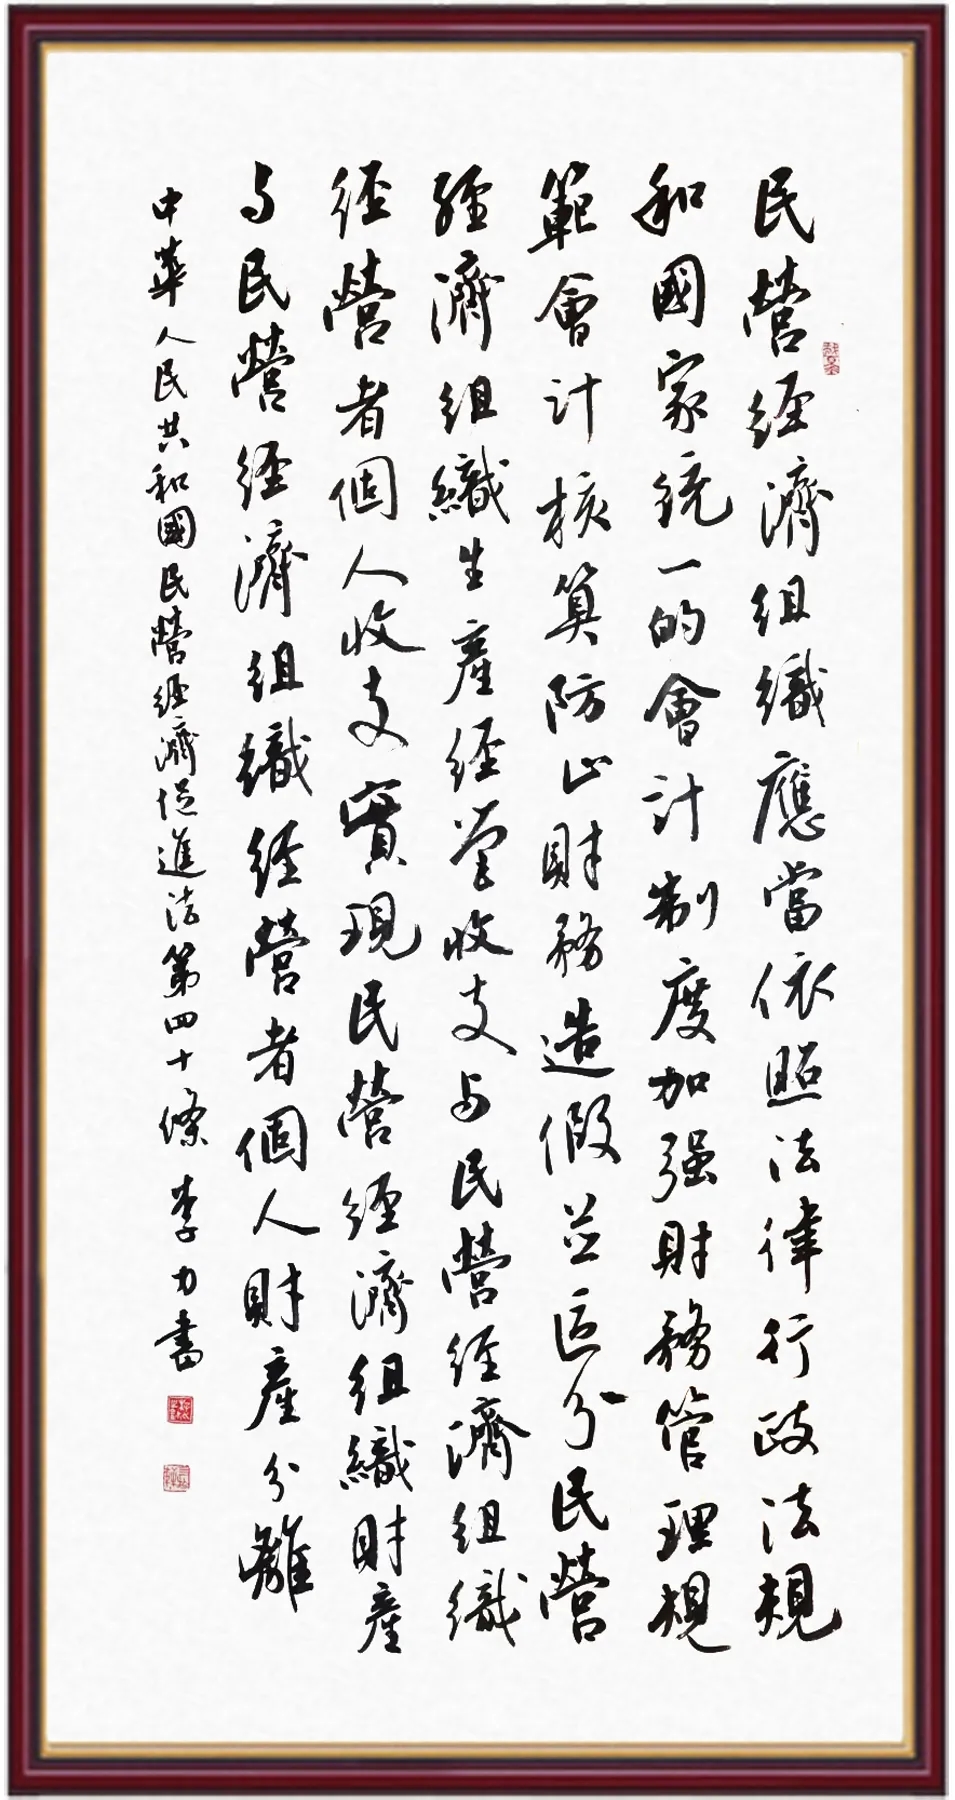 民營經濟組織應當依照法律行政法規
和國家統一的會計制度加强財務管理規
範會計核算防止財務造假並區分民營
經濟組織生產經營收支与民營經濟組織
經營者個人收支實現民營經濟組織財產
与民營經濟組織經營者個人財產分離
中華人民共和國民營經濟促進法第四十條 李力書